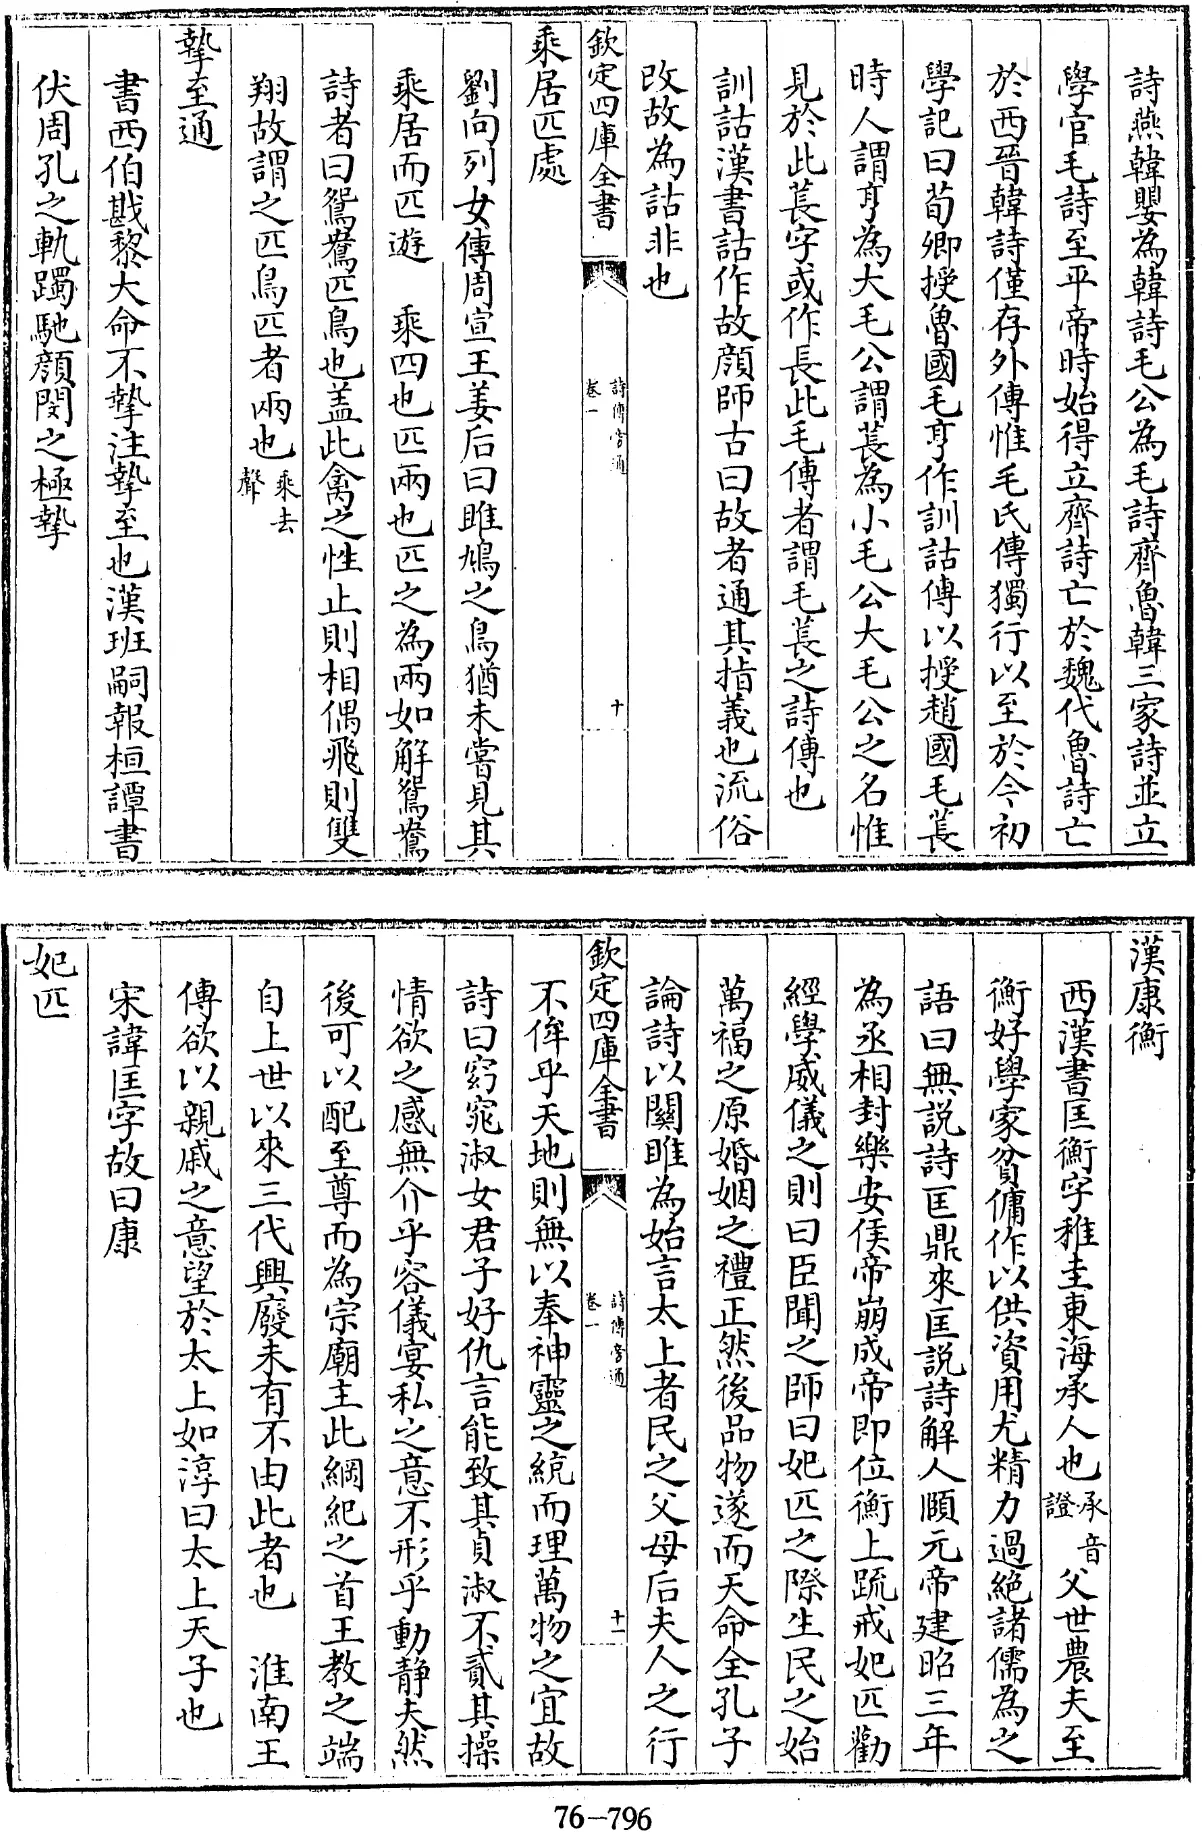 詩燕韓嬰為韓詩毛公為毛詩齊魯韓三家詩並立
學官毛詩至平帝時始得立齊詩亡於魏代魯詩亡
於西晉韓詩僅存外傳惟毛氏傳獨行以至於今初
學記曰荀卿授魯國毛亨作訓詁傳以授趙國毛萇
時人謂亨為大毛公謂萇為小毛公大毛公之名惟
見於此萇字或作長此毛傳者謂毛萇之詩傳也
訓詁漢書詁作故顔師古曰故者通其指義也流俗
改故為詁非也
欽定四庫全書
詩傳旁通
卷一
十
乘居匹處
劉向列女傳周宣王姜后曰雎鳩之鳥猶未嘗見其
乘居而匹遊　乘四也匹兩也匹之為兩如解鴛鴦
詩者曰鴛鴦匹鳥也盖此禽之性止則相偶飛則雙
翔故謂之匹鳥匹者兩也乘去聲
摯至通
書西伯戡黎大命不摯注摯至也漢班嗣報桓譚書
伏周孔之軌躅馳顔閔之極摯
漢康衡
西漢書匡衡字稚圭東海承人也承音證父世農夫至
衡好學家貧傭作以供資用尤精力過絶諸儒為之
語曰無説詩匡鼎來匡説詩解人頤元帝建昭三年
為丞相封樂安侯帝崩成帝即位衡上疏戒妃匹勸
經學威儀之則曰臣聞之師曰妃匹之際生民之始
萬福之原婚姻之禮正然後品物遂而天命全孔子
論詩以關雎為始言太上者民之父母后夫人之行
欽定四庫全書
詩傳旁通
卷一
十一
不侔乎天地則無以奉神靈之統而理萬物之宜故
詩曰窈窕淑女君子好仇言能致其貞淑不貳其操
情欲之感無介乎容儀宴私之意不形乎動靜夫然
後可以配至尊而為宗廟主此綱紀之首王教之端
自上世以來三代興廢未有不由此者也　淮南王
傳欲以親戚之意望於太上如淳曰太上天子也
宋諱匡字故曰康
妃匹
76-796